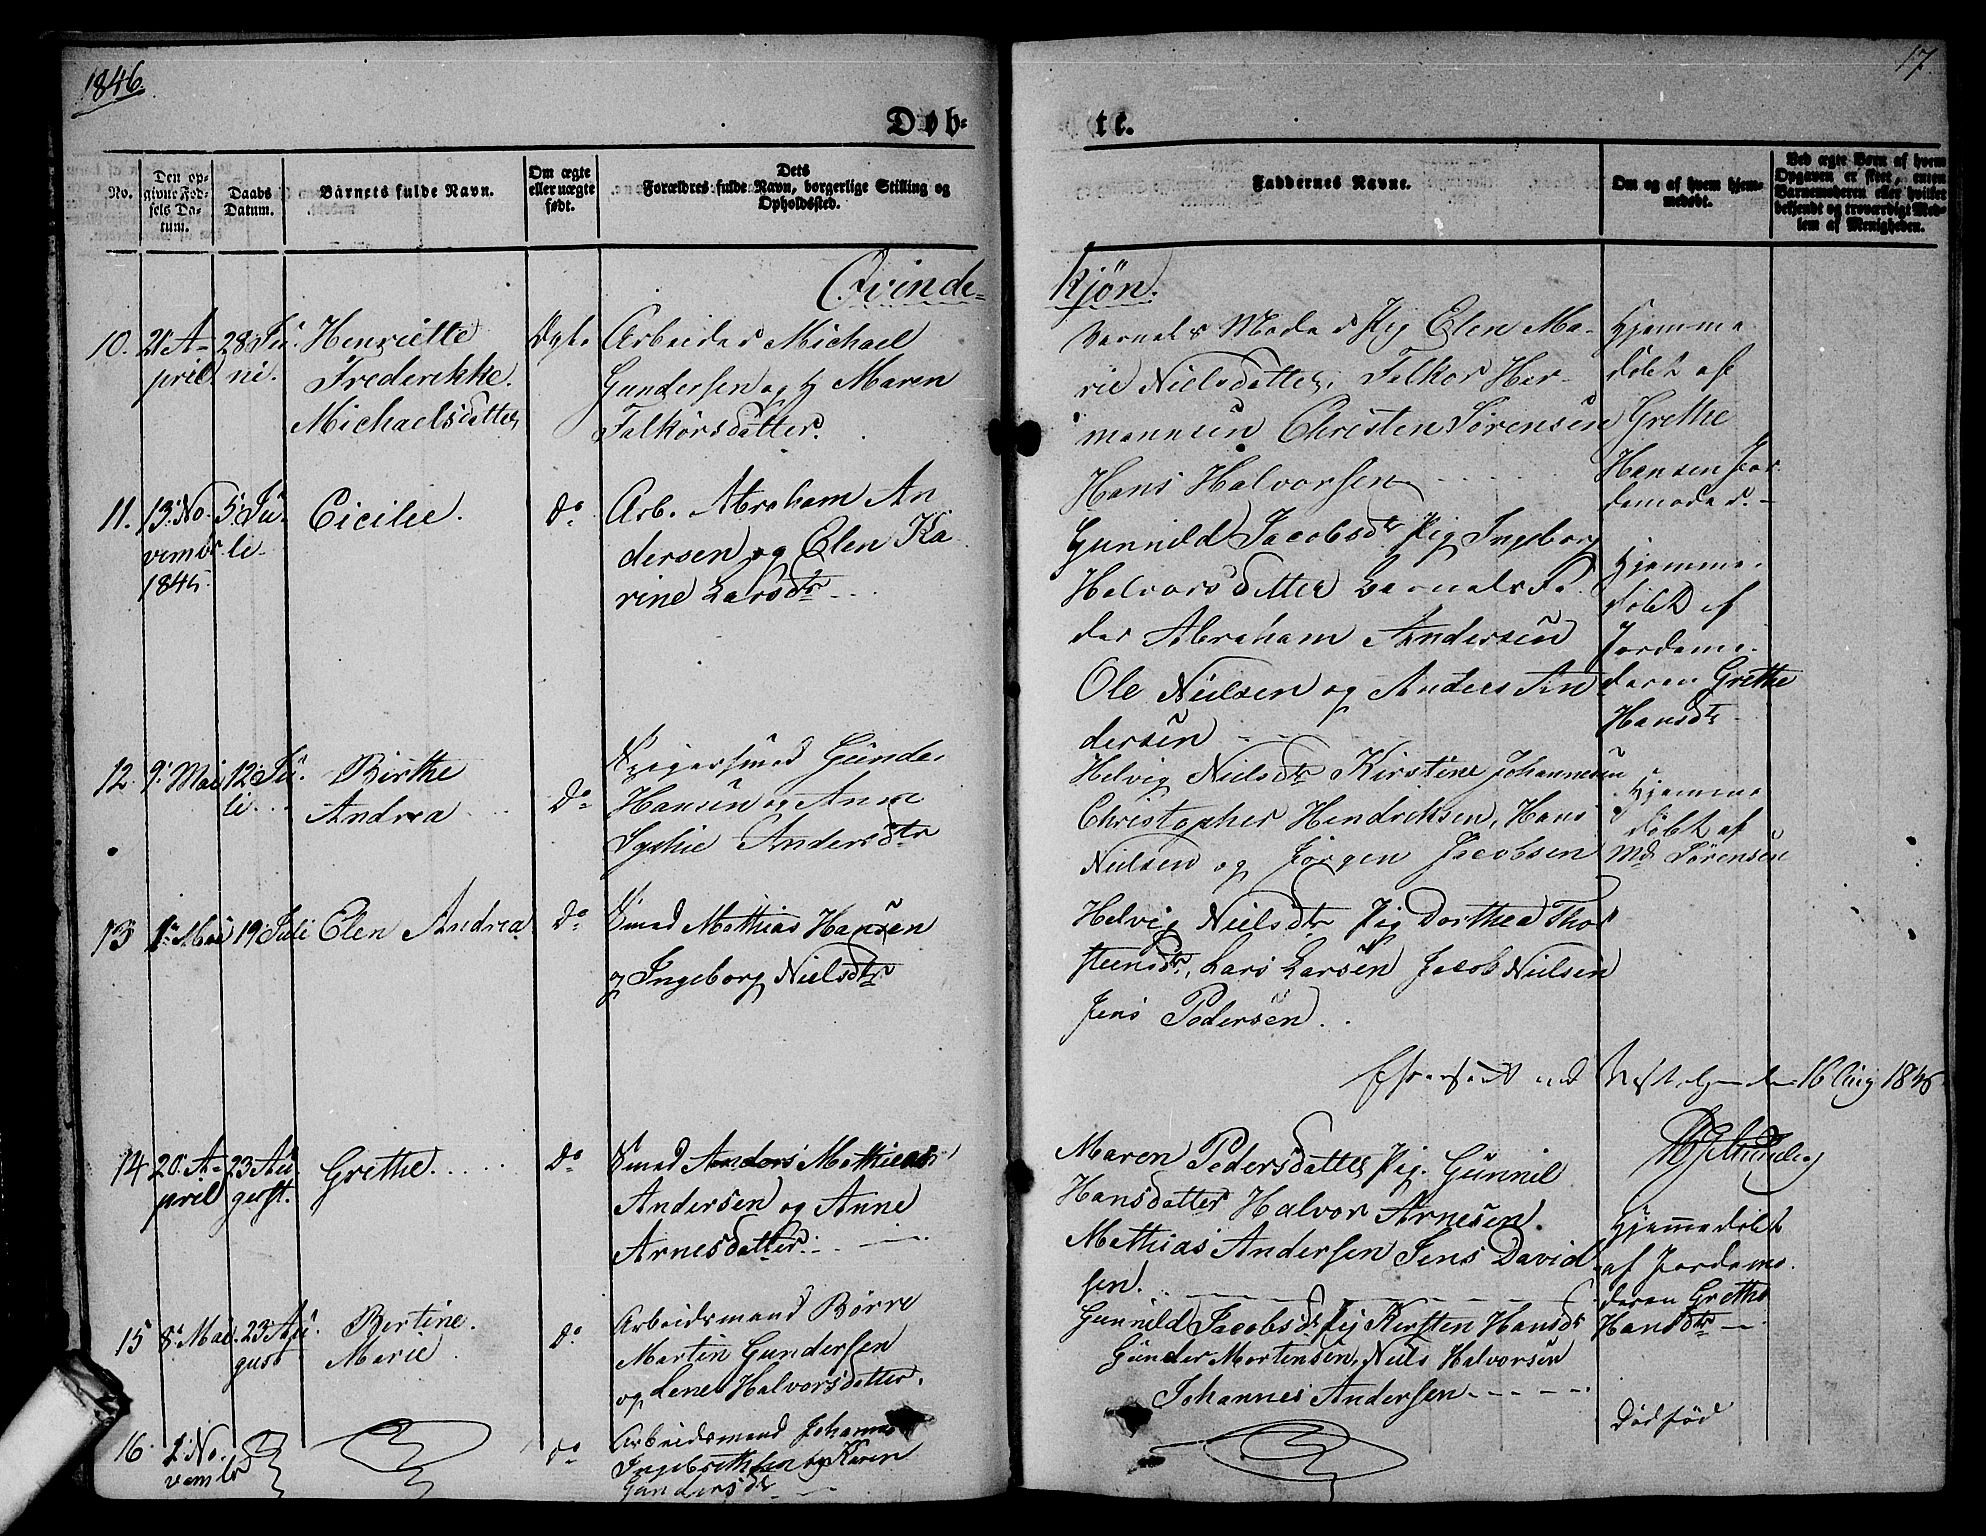 1846.
17
Døb-
te.
No.
Den op-
givne Fød-
sels Da-
tum.
Daabs
Datum.
Barnets fulde Navn.
Om ægte
eller uægte
født.
Dets
Forældres fulde Navn, borgerlige Stilling og
Opholdssted.
Faddernes Navne.
Om og af hvem hjem-
medøbt.
Ved ægte Børn af hvem
Opgaven er skeet, enten
Barnemoderen eller hvilket
bekjendt og troværdigt Med-
lem af Menigheden.
Qvinde-
kjøn.
10.
21 A-
pril
28 Ju-
ni.
Henriette
Frederikke
Michaelsdatter
Ægte
Arbeider Michael
Gundersen og H Maren
Falkorsdatter.
Barnets Moder Pig Elen Ma-
rie Nielsdatter, Falkor Her-
mannsen Christen Sørensen
Hans Halvorsen
Hjemme
døbt af
Grethe
Hansen Jor
demoder.
11.
13 No.
vembr
1845
5 Ju-
li
Cicilie.
do
Arb. Abraham An
dersen og Elen Ka
rine Larsdtr
Gunnild Jacobsdtr Pig Ingeborg
Halvorsdatter Barnets Fa
der Abraham Andersen
Ole Nielsen og Anders An
dersen
Hjemme
døbt af
Jordemo
deren Grethe
Hansdtr
12
9 Mai
12 Ju-
li
Birthe
Andrea
do
Gunder
Hansen og Anne
Sophie Andersdtr
Helvig Nielsdtr Kirstine Johannesen
Christopher Hendriksen, Hans
Nielsen og Jørgen Jacobsen
Hjemme
døbt af
Md Sørensen
13
1 Mai
19 Juli
Elen Andrea
do
Smed Mathias Hansen
og Ingeborg Nielsdtr
Helvig Nielsdtr Pig Dorthea Thor
steensdtr, Lars Larsen Jacob Nielsen
Jens Pedersen
16 Aug 1846
14
20 A-
pril
23 Au
gust.
Grethe
do
Smed Anders Mathias
Andersen og Anne
Arnesdatter
Maren Pedersdatter Pig. Gunnil
Hansdatter Halvor Arnesen
Mathias Andersen Jens David
sen.
Hjemmedøbt
af Jordemo
deren Grethe
Hansdtr
15
8 Mai
23 Au
gust
Bertine
Marie
do
Arbeidsmand Børre
Martin Gundersen
og Lene Halvorsdatter.
Gunnild Jacobsdtr Pig Kirsten Hansdr
Gunder Mortensen, Niels Halvorsen
Johannes Andersen
16
2 No.
vembr
do
Arbeidsmand Johannes
Ingebrethsen og Karen
Gundersdtr
Dødfød